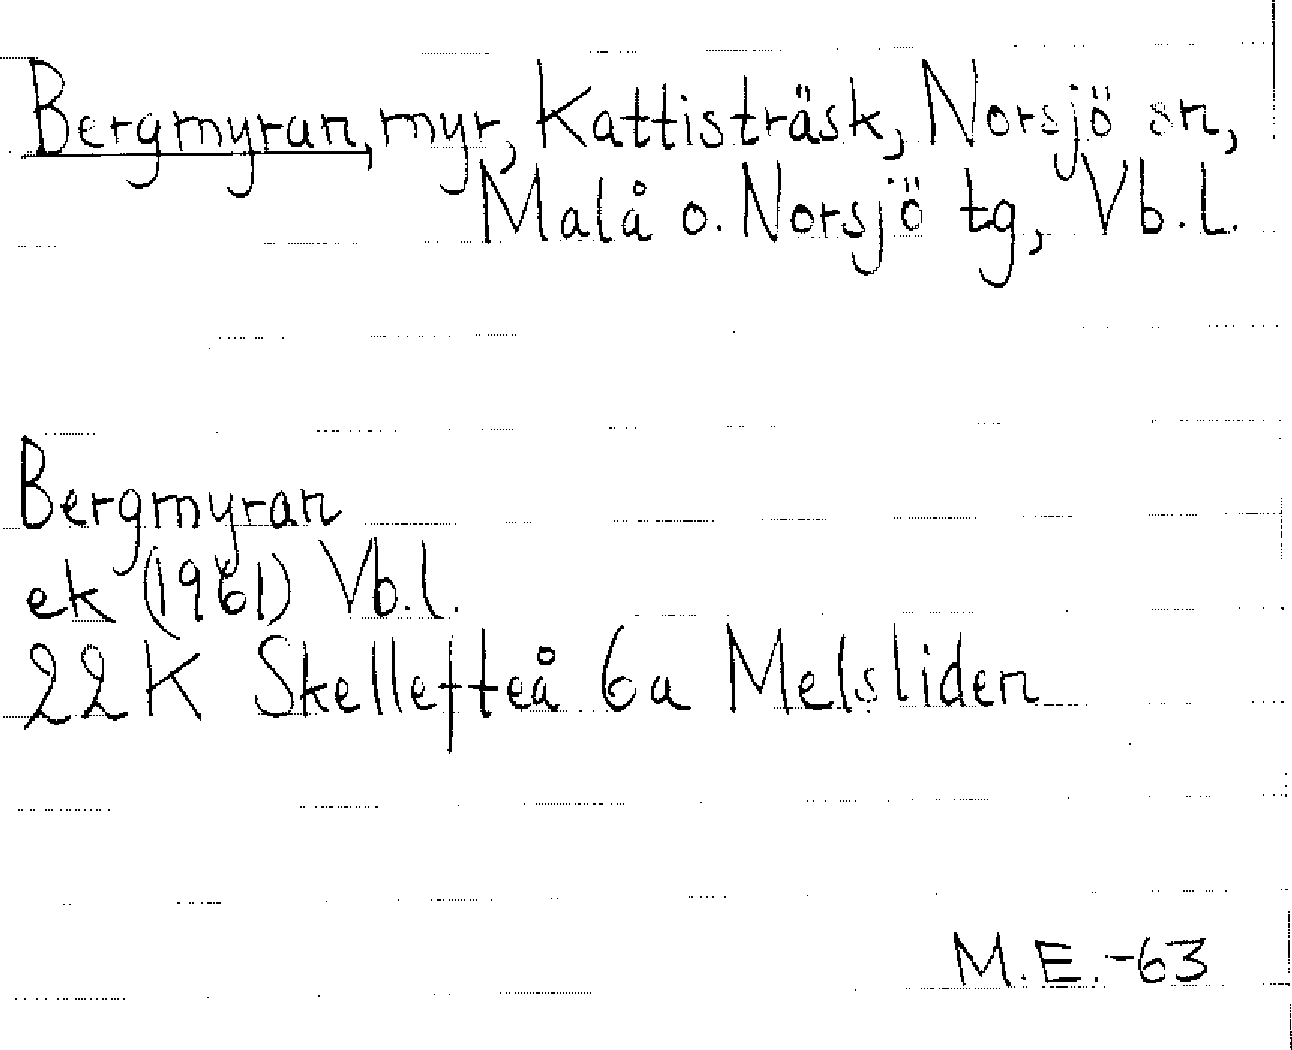 Bergmyran, myr, Kattisträsk, Norsjö sn,
Malå o. Norsjö tg, Vb.l.
Bergmyran
ek (1961) Vb.l.
22K Skellefteå 6a Melsliden
M.E.-63